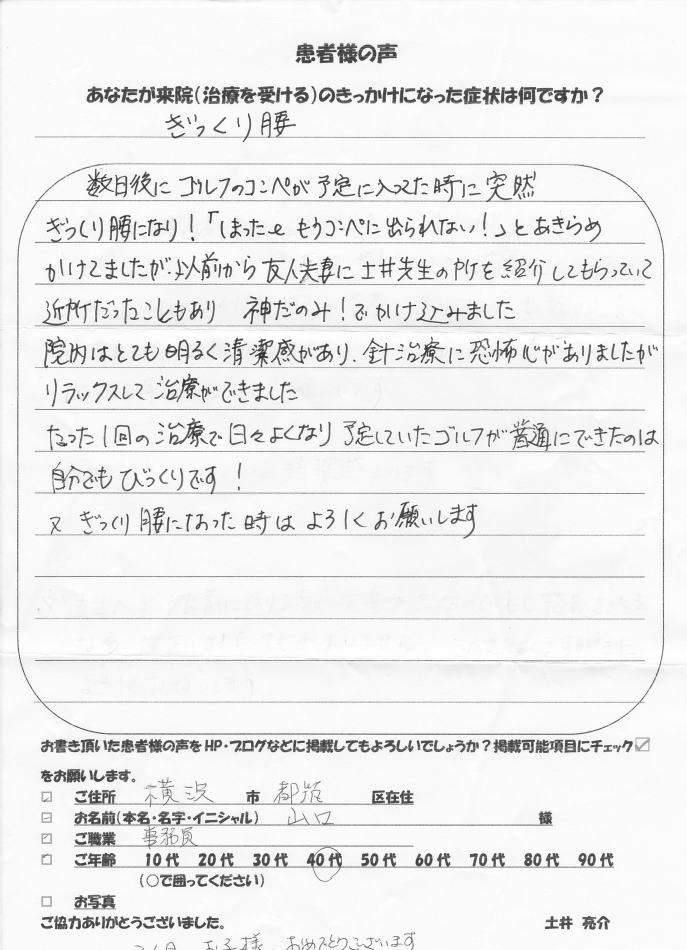 患者様の声
あなたが来院(治療を受ける)のきっかけになった症状は何ですか?
ぎっくり腰
数日後に ゴルフのコンペが 予定に入ってた時に 突然
ぎっくり腰になり!「しまった もうコンペに出られない!」と あきらめ
かけてましたが、以前から 友人夫妻に 土井先生の所を 紹介してもらっていて
近所だったこともあり 神だのみ!でかけ込みました
院内はとても明るく 清潔感があり、針治療に恐怖心がありましたが
リラックスして 治療ができました
たった1回の治療で日々よくなり 予定していたゴルフが普通にできたのは
自分でも びっくりです!
又 ぎっくり腰になった時は よろしくお願いします
お書き頂いた患者様の声をHP・ブログなどに掲載してもよろしいでしょうか?掲載可能項目にチェック☑
をお願います。
☑ ご住所 横浜 市 都筑 区在住
☑ お名前(本名・名字・イニシャル) 山口 様
☑ ご職業 事務員
☑ ご年齢 10代 20代 30代 40代 50代 60代 70代 80代 90代
(○で囲ってください)
□ お写真
ご協力ありがとうございました。 土井 亮介
お子様、おめでとうございます